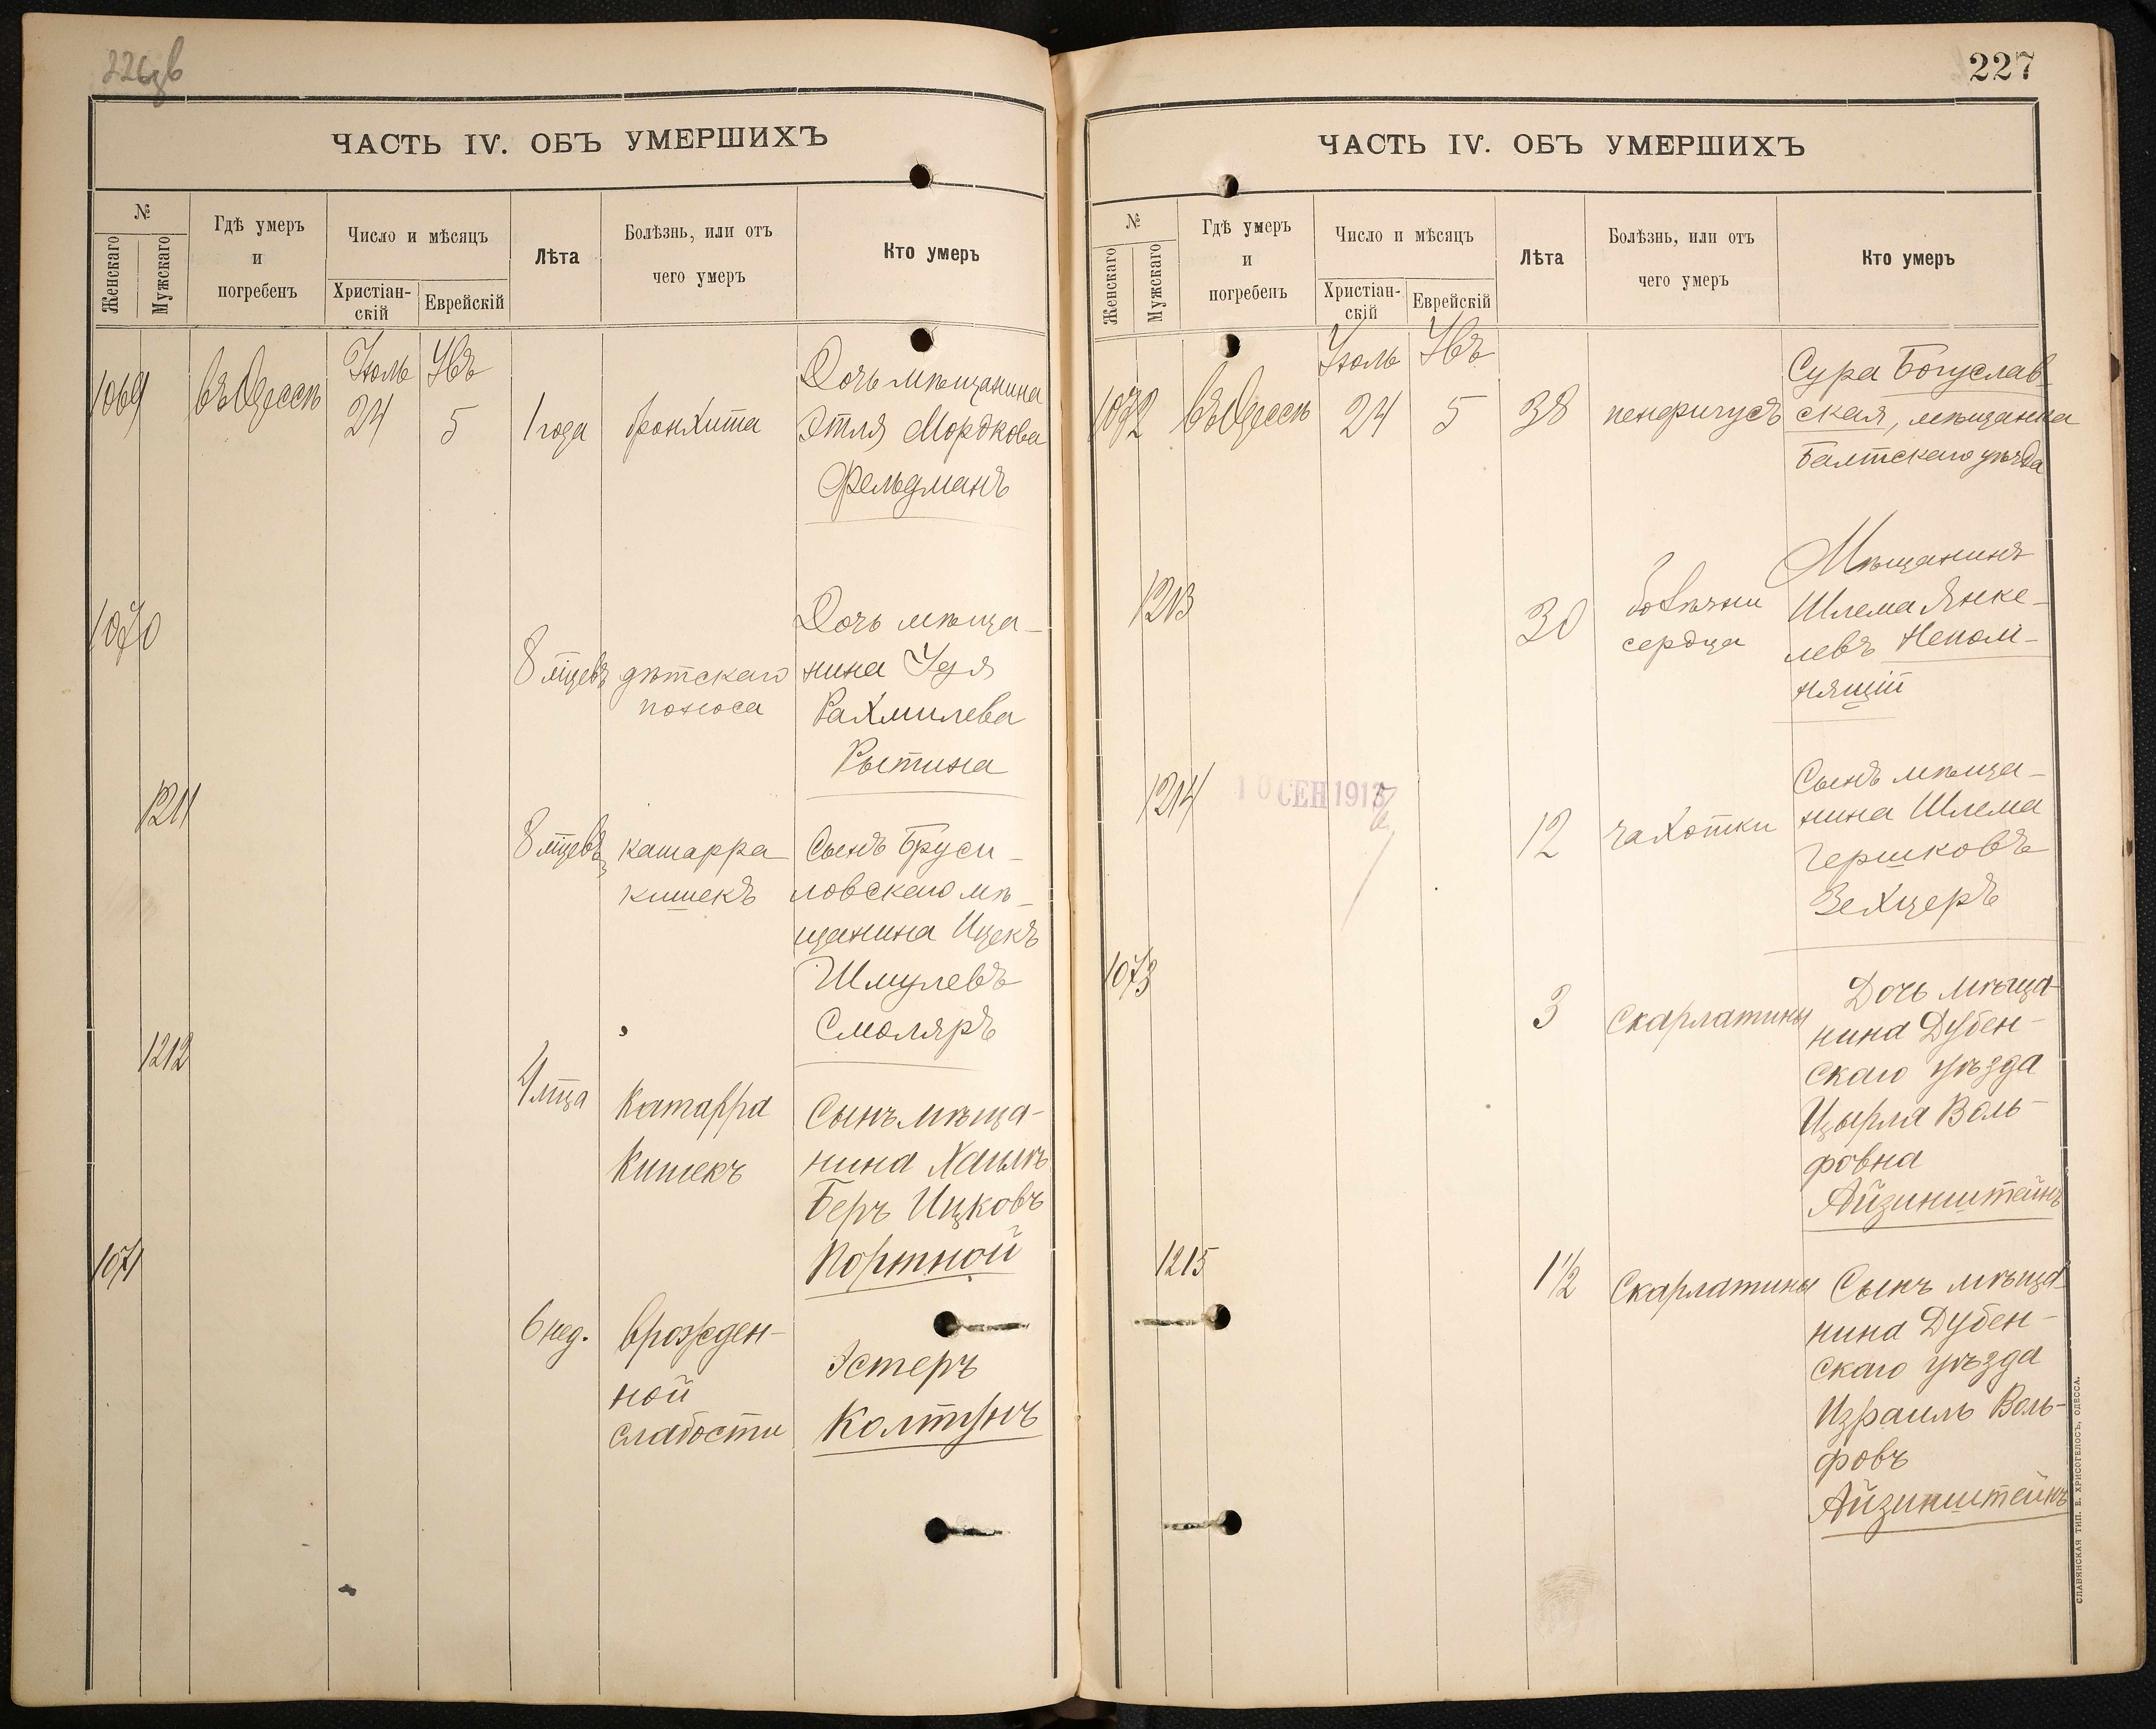 226об
ЧАСТЬ IV. ОБЪ УМЕРШИХЪ
№
Женскаго
Мужскаго
Гдѣ умеръ
и
погребенъ
Число и мѣсяцъ
Христіан-
скій
Еврейскій
Лѣта
Болѣзнь, или отъ
чего умеръ
Кто умеръ
1069
въ Одессѣ
Іюль
24
Увъ
5
1 года
бронхита
Дочь мѣщанина
Этля Мордкова
Фельдманъ
1070
8 мцевъ
дѣтскаго
поноса
Дочь мѣща-
нина Удя
Рахмилева
Рытина
1211
8 мцевъ
катарра
кишекъ
Сынъ Бруси-
ловскаго мѣ-
щанина Ицекъ
Шмулевъ
Смоляръ
1212
4 мца
Катарра
Кишекъ
Сынъ мѣща-
нина Хаимъ
Беръ Ицковъ
Портной
1071
6 нед.
врожден-
ной
слабости
Эстеръ
Колтунъ
227
ЧАСТЬ IV. ОБЪ УМЕРШИХЪ
№
Женскаго
Мужскаго
Гдѣ умеръ
и
погребенъ
Число и мѣсяцъ
Христіан-
скій
Еврейскій
Лѣта
Болѣзнь, или отъ
чего умеръ
Кто умеръ
1072
въ Одессѣ
Іюль
24
Увъ
5
38
пемфигусъ
Сура Богуслав-
ская, мѣщанка
Балтскаго уѣзда
1213
30
болѣзни
сердца
Мѣщанинъ
Шлема Янке-
левъ Непом-
нящій
1214
10 СЕН 1913
12
чахотки
Сынъ мѣща-
нина Шлема
Гершковъ
Зехцеръ
1073
3
Скарлатины
Дочь мѣща-
нина Дубен-
скаго уѣзда
Цырля Воль-
фовна
Айзинштейнъ
1215
1½
Скарлатины
Сынъ мѣща-
нина Дубен-
скаго уѣзда
Израиль Воль-
фовъ
Айзинштейнъ
СЛАВЯНСКАЯ ТИП. Е. ХРИСОГЕЛОСЪ, ОДЕССА.